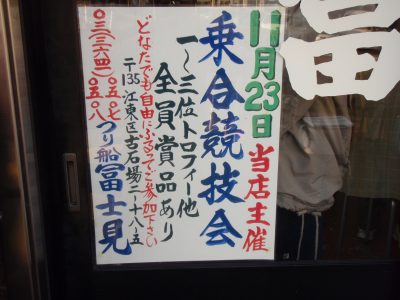 11月23日当店主催
乗合競技会
一〜三位トロフィー他
全員賞品あり
どなたでも自由にふるってご参加下さい
〒135江東区古石場二ー十八ー五
つり船富士見
〇三(三六四一)〇五〇七
〇五〇八
富